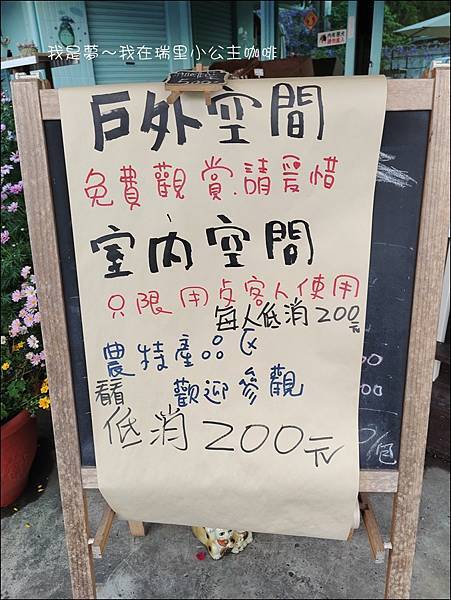 我是夢～我在瑞里小公主咖啡
戶外空間
免費觀賞.請愛惜
室內空間
只限用歺客人使用
每人低消200元
農特產品区
歡迎參觀
低消200元
00
00
0/包